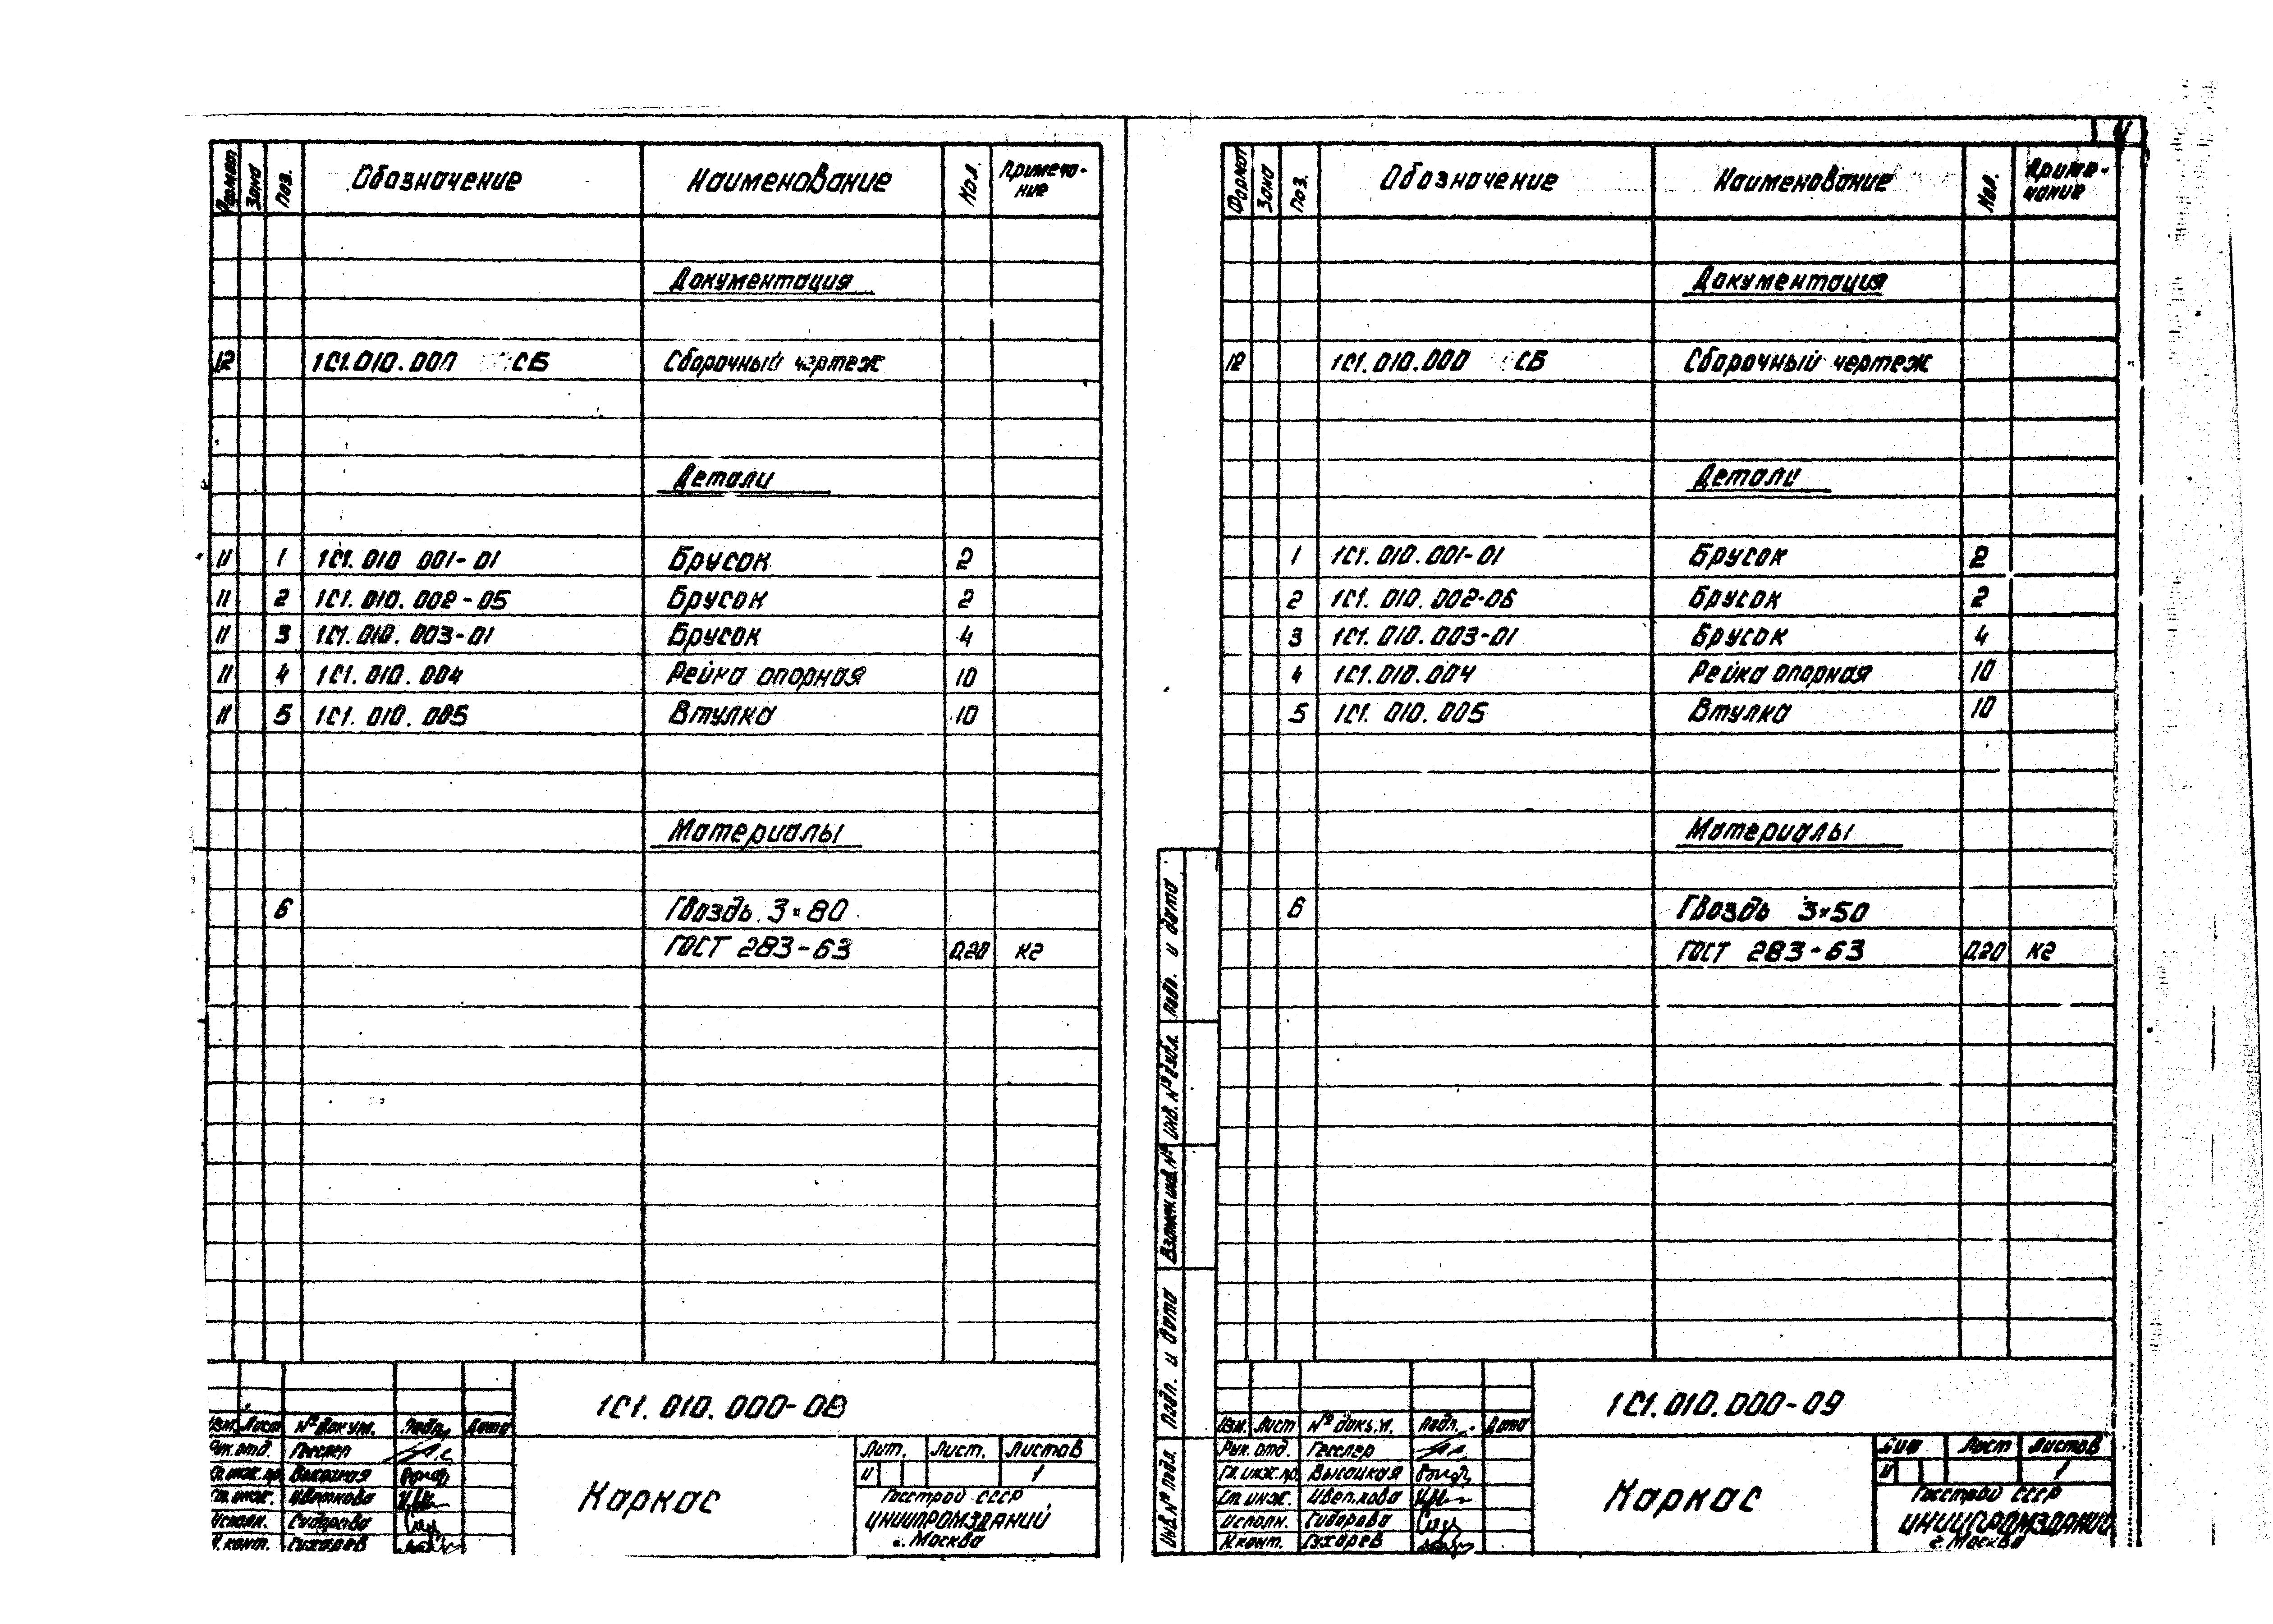 Формат Зона Поз. Обозначение Наименование Кол. Примеча-
ние
Документация
12 1С1.010.000 СБ Сборочный чертеж
Детали
11 1 1С1.010 001-01 Брусок 2
11 2 1С1.010.002-05 Брусок 2
11 3 1С1.010.003-01 Брусок 4
11 4 1С1.010.004 Рейка опорная 10
11 5 1С1.010.005 Втулка 10
Материалы
6 Гвоздь 3×80
ГОСТ 283-63 0,20 кг
1С1.010.000-08
Изм. Лист № докум. Подп. Дата
Рук. отд. Гесслер
Гл. инж. пр. Высоцкая
Ст. инж. Цветкова
Исполн. Сидорова
Н. конт. Сухарев
Каркас
Лит. Лист. Листов
И 1
Госстрой СССР
ЦНИИПРОМЗДАНИЙ
г. Москва
Формат Зона Поз. Обозначение Наименование Кол. Приме-
чание
Документация
12 1С1.010.000 СБ Сборочный чертеж
Детали
1 1С1.010.001-01 Брусок 2
2 1С1.010.002-06 Брусок 2
3 1С1.010.003-01 Брусок 4
4 1С1.010.004 Рейка опорная 10
5 1С1.010.005 Втулка 10
Материалы
6 Гвоздь 3×50
ГОСТ 283-63 0,20 кг
Подп. и дата
Инв. № дубл.
Взамен инв. №
Подп. и дата
Инв. № подл.
1С1.010.000-09
Изм. Лист № докум. Подп. Дата
Рук. отд. Гесслер
Гл. инж. пр. Высоцкая
Ст. инж. Цветкова
Исполн. Сидорова
Н. конт. Сухарев
Каркас
Лит Лист Листов
И 1
Госстрой СССР
ЦНИИПРОМЗДАНИЙ
г. Москва